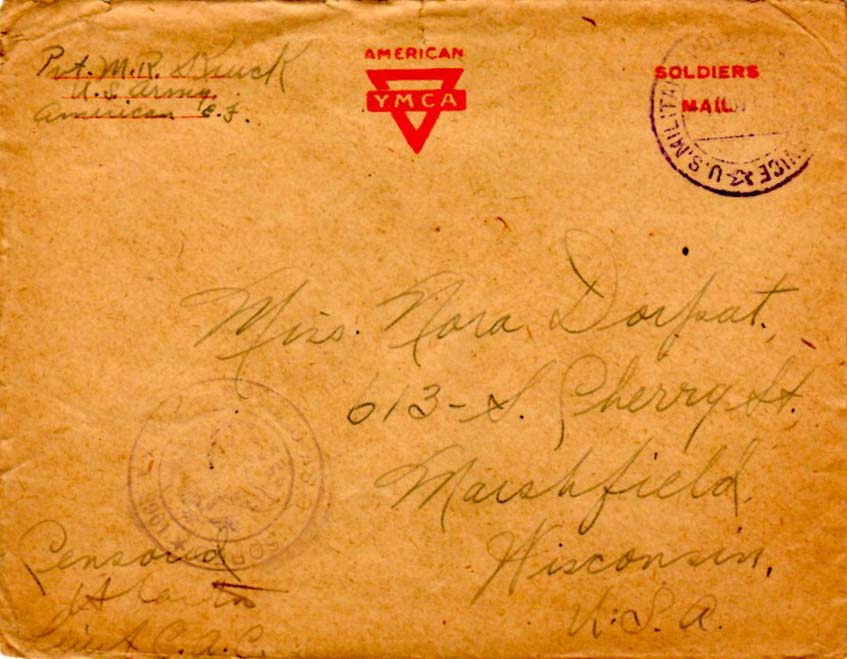 Pvt. M. R. Kluck
U.S. Army,
American E.F.
AMERICAN
YMCA
SOLDIERS
MAIL
U.S. MILITA
VICE
Miss. Nora Dorpat,
613-S. Cherry St.
Marshfield,
Wisconsin,
U.S.A.
Censored
Lieut C.A.C.